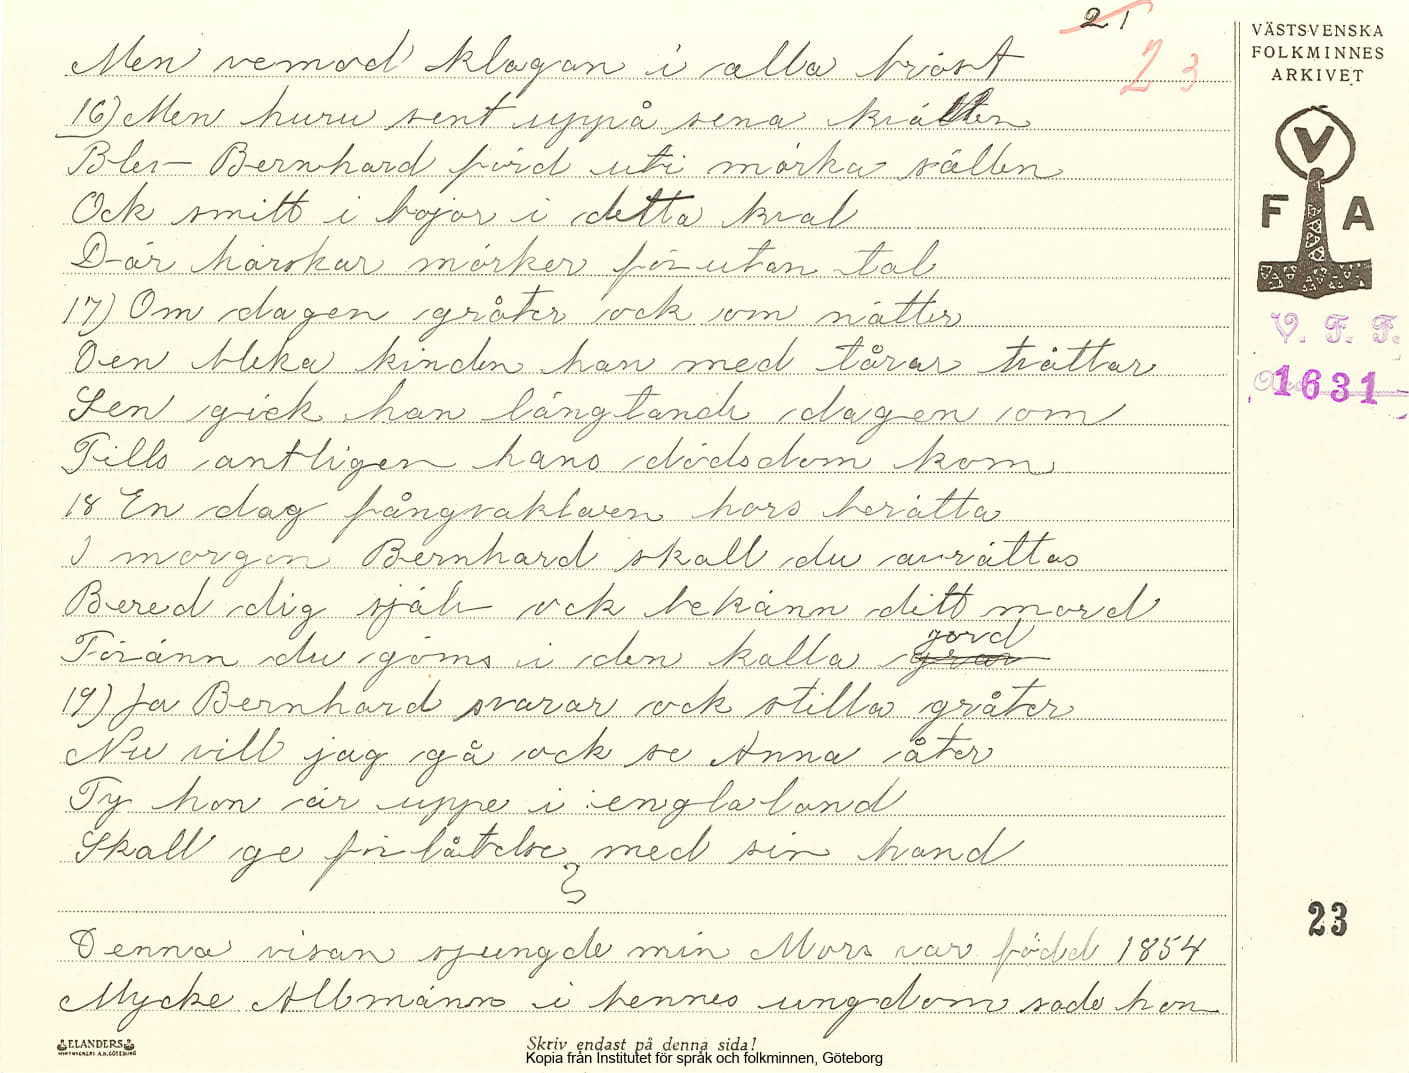 21
23
VÄSTSVENSKA
FOLKMINNES
ARKIVET
V
F A
V. F. F.
1631
Men vemod klagan i alla bröst
16) Men huru sent uppå sena kvällen
Blev Bernhard förd uti mörka sällen
Ock smitt i bojor i detta kval
Där härskar mörker för utan tal
17) Om dagen gråter ock om nätter
Den bleka kinden han med tårar tvättar
Sen gick han längtande dagen om
Tills äntligen hans dödsdom kom
18 En dag fångvaktaren hörs berätta
I morgon Bernhard skall du avrättas
Bered dig själv ock bekänn ditt mord
Föränn du göms i den kalla grav jord
19) Ja Bernhard svarar ock stilla gråter
Nu vill jag gå ock se Anna åter
Ty hon är uppe i englaland
Skall ge förlåtelse med sin hand
23
Denna visan sjungde min Mors var född 1854
Mycke Allmänn i hennes ungdom sade hon
ELANDERS
BOKTRYCKERI A.B. GÖTEBORG
Skriv endast på denna sida!
Kopia från Institutet för språk och folkminnen, Göteborg